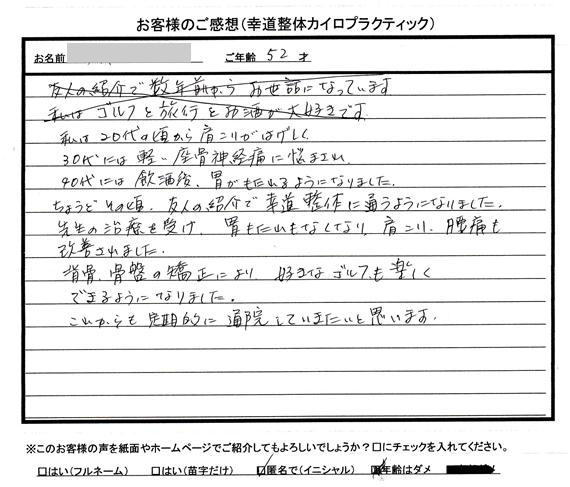 お客様のご感想(幸道整体カイロプラクティック)
お名前 ご年齢 52 才
友人の紹介で数年前から お世話になっています
私は ゴルフと旅行とお酒が大好きです。
私は20代の頃から肩こりがはげしく
30代には軽い座骨神経痛に悩まされ
40代には飲酒後、胃がもたれるようになりました。
ちょうどその頃、友人の紹介で幸道整体に通うようになりました。
先生の治療を受け、胃もたれもなくなり、肩こり、腰痛も
改善されました。
背骨、骨盤の矯正により 好きなゴルフも楽しく
できるようになりました。
これからも定期的に通院していきたいと思います。
※このお客様の声を紙面やホームページでご紹介してもよろしいでしょうか?□にチェックを入れてください。
□はい(フルネーム) □はい(苗字だけ) ☑匿名で(イニシャル) 年齢はダメ